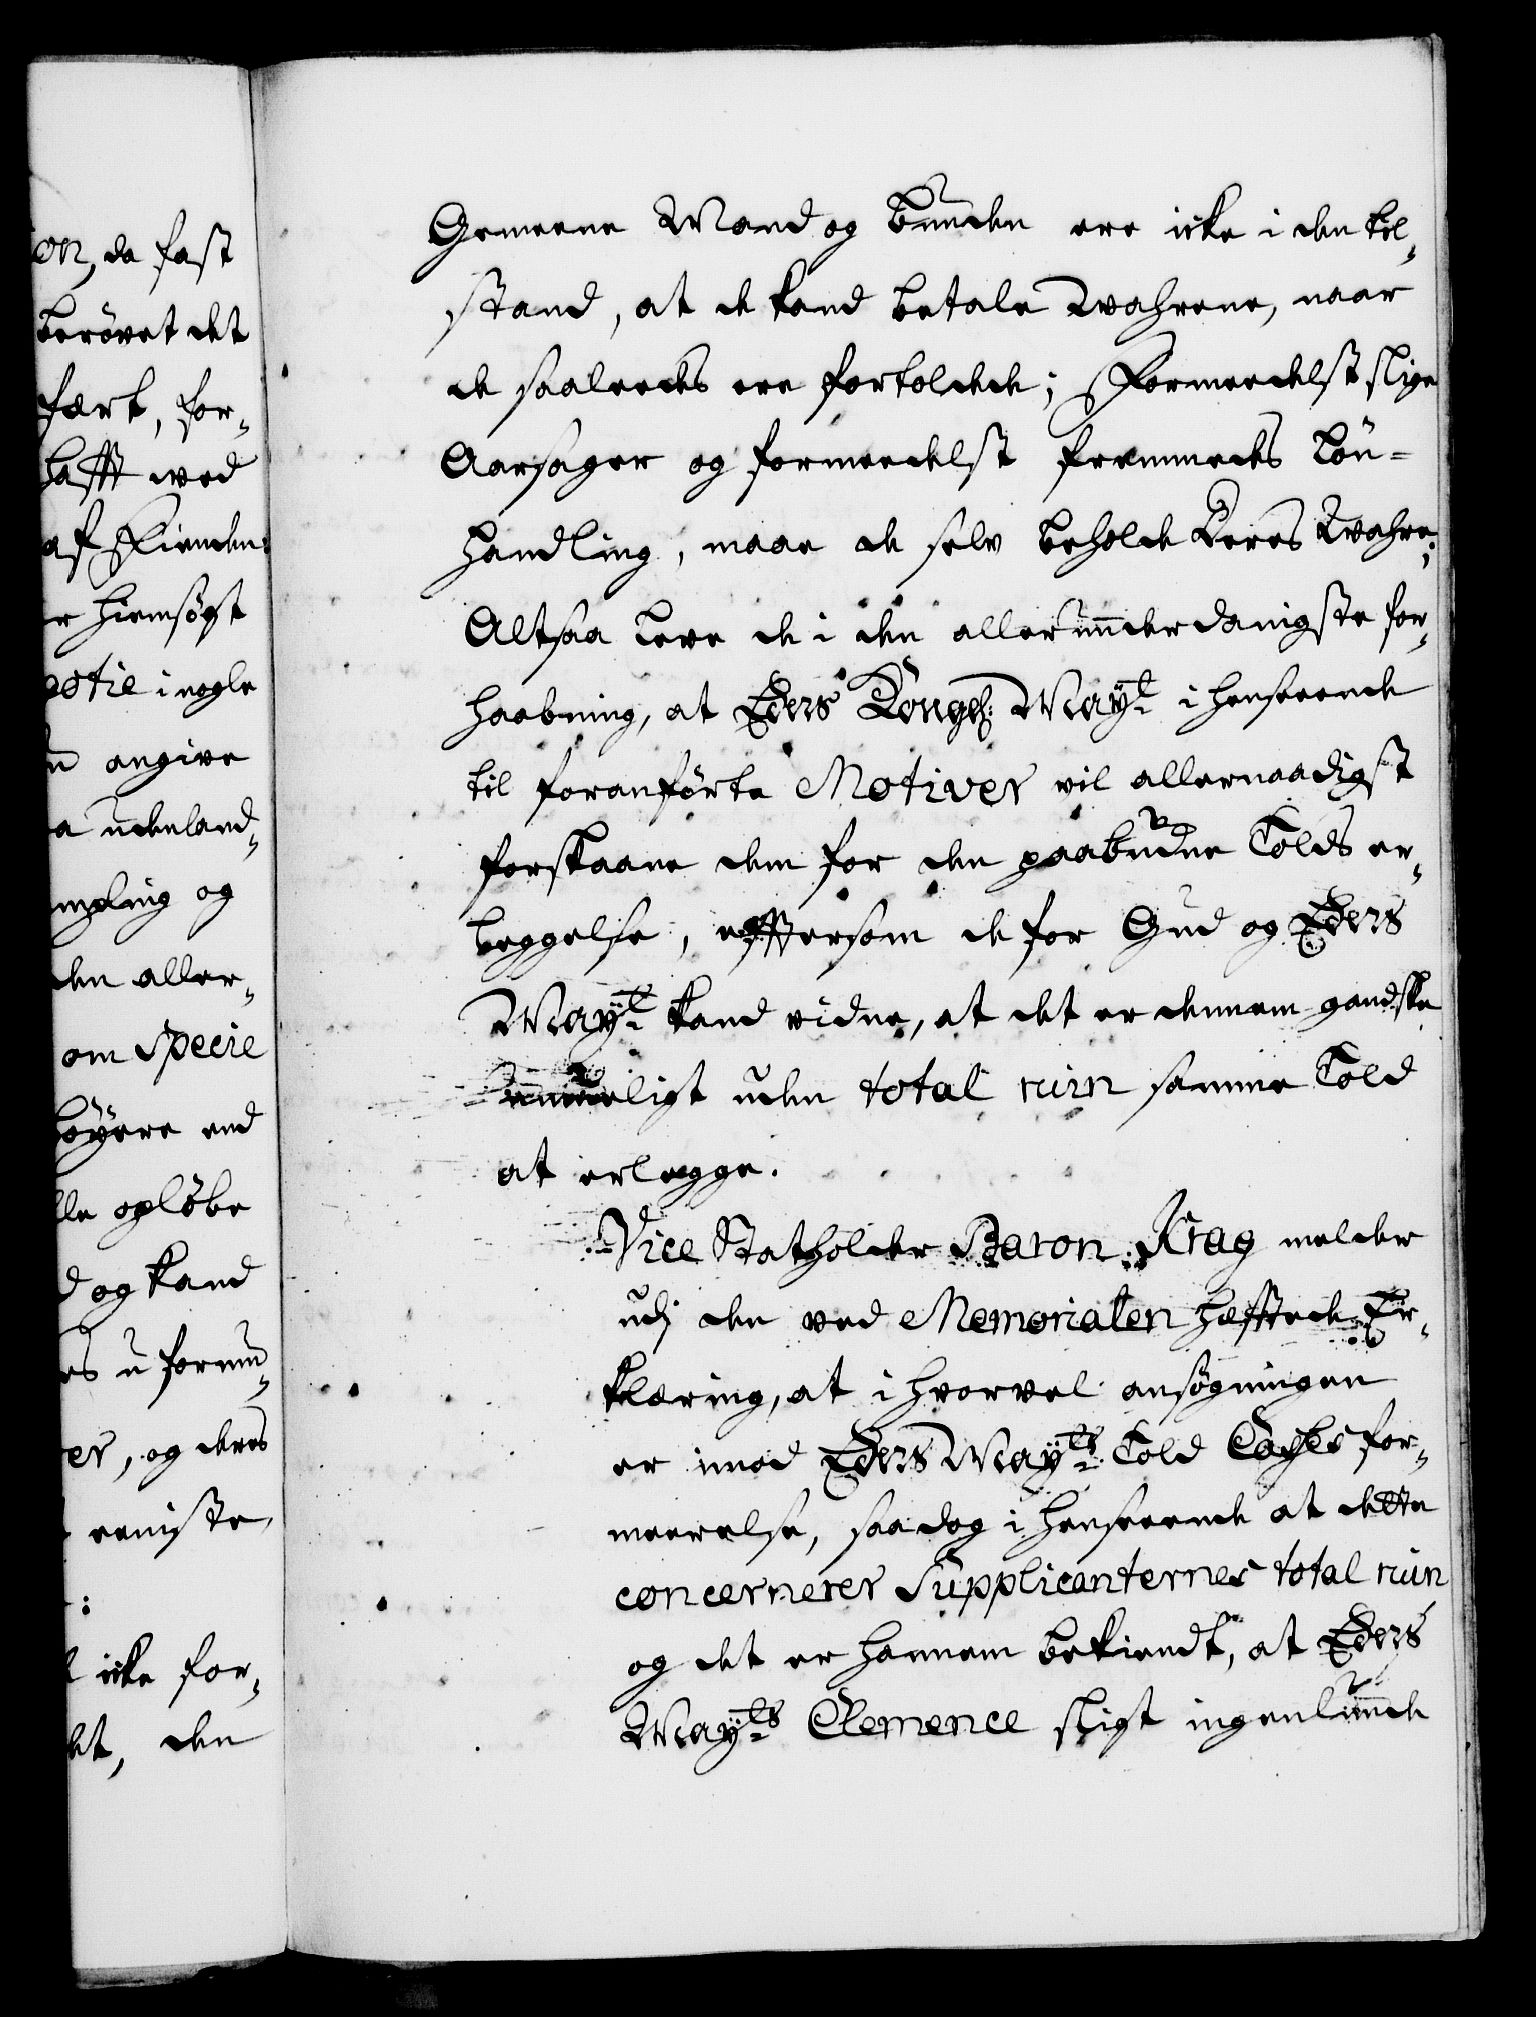 on, da fast
berövet det
fært, for¬
hafft wed
af Fienden
r hiemsögt
gotie i nogle
n angive
a udenland¬
mpling og
den aller¬
om specie
höyere end
lle oplöbe
d og kand
es u formu¬
er, og deres
eeniste
:
l icke for¬
et, den
Gemeene Mand og Bunden ere icke i den til¬
stand, at de kand betale Wahrene, naar
de saaleedes ere fortoldede; Formeedelst slige
Aarsager og formeedelst fremmedes Lön=
handling, maae de selv beholde Deres Wahre;
Altsaa leve de i den allerunderdanigste for¬
haabning, at Eders Kongl: Mayt i henseende
til foranförte Motiver vil allernaadigst
forskaane dem for den paabudne Tolds er¬
læggelse, efftersom de for Gud og Eders
Mayt kand vidne, at det er dennem gandske
umueligt uden total ruin samme Told
at erlegge.
Vice Statholder Baron Krag melder
udj den ved Memorialen hæfftede Er¬
klæring, at i hvorvel ansögningen
er imod Eders Mayts Told Casses for¬
meerelse, saa dog i henseende at dette
concernerer Supplicanternes total ruin
og det er hannem bekiendt, at Eders
Mayts Clemence sligt ingenlunde